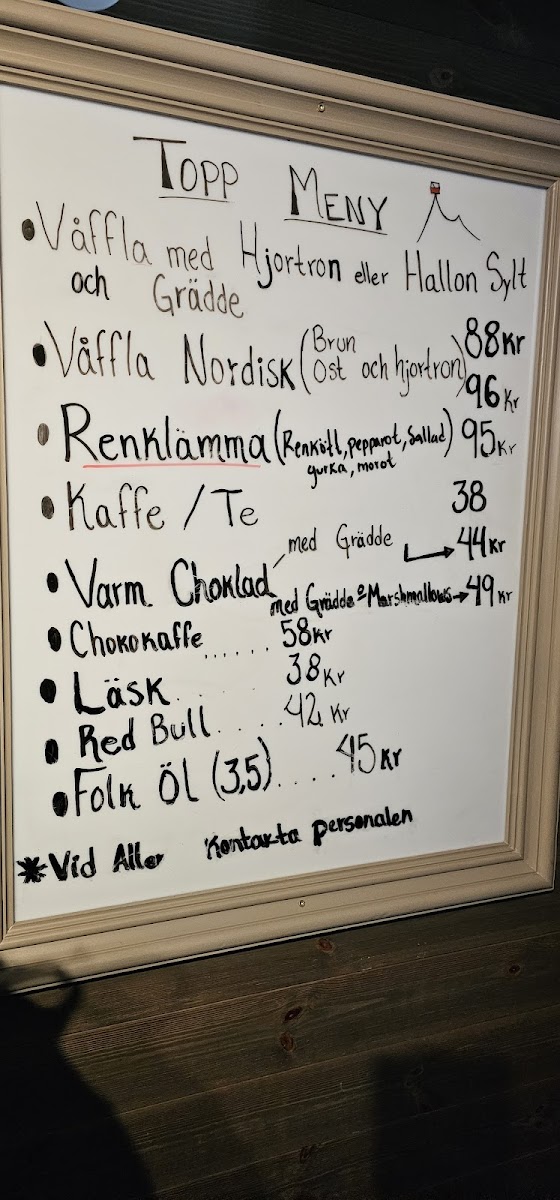 TOPP MENY
• Våffla med Hjortron eller Hallon Sylt
och Grädde 88Kr
• Våffla Nordisk (Brun
Ost och hjortron) 96 Kr
• Renklämma (Renkött, pepparot, Sallad) 95 Kr
gurka, morot
• Kaffe / Te 38
med Grädde 44 Kr
• Varm Choklad
med Grädde o Marshmallows 49 Kr
• Chokokaffe ...... 58 Kr
• Läsk ..... 38 Kr
• Red Bull ..... 42 Kr
• Folk Öl (3,5) .... 45 Kr
* Vid Aller Kontakta personalen